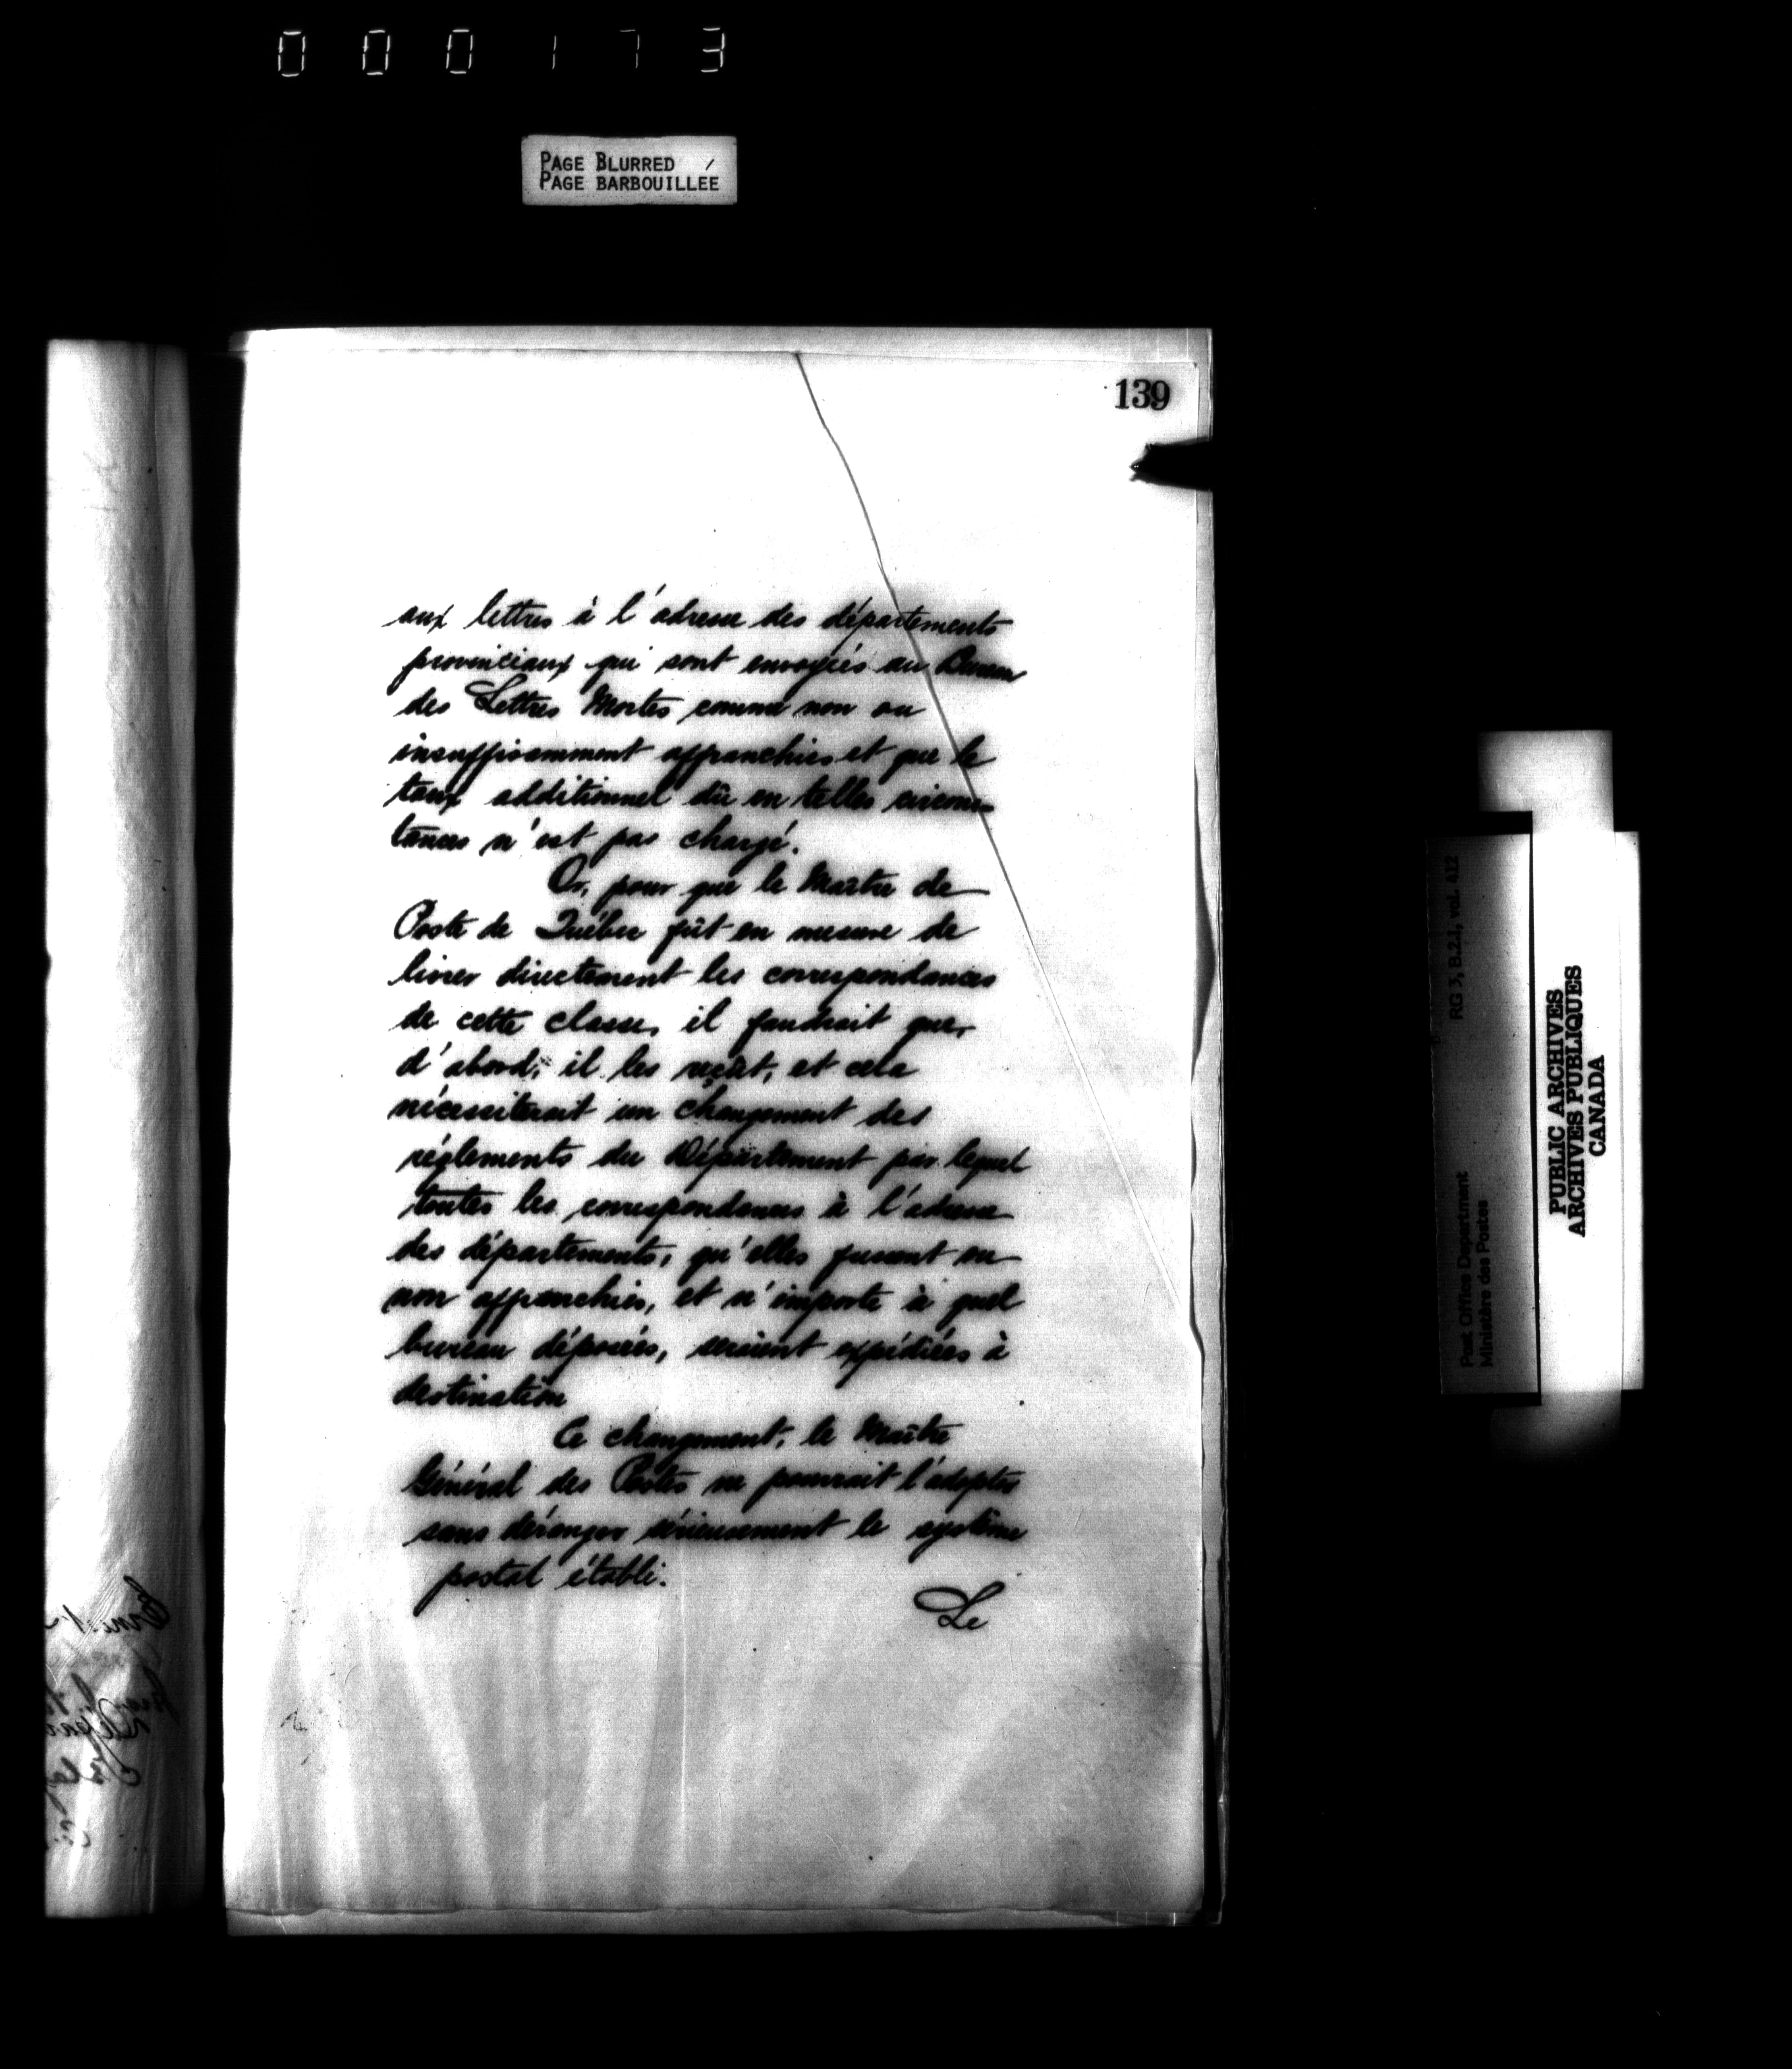 000173
PAGE BLURRED /
PAGE BARBOUILLÉE
139
aux lettres à l'adresse des départements
provinciaux qui sont envoyées au Bureau
des Lettres Mortes comme non ou
insuffisamment affranchies et que le
taux additionnel dû en telles circons-
tances n'est pas chargé.
Or, pour que le Maître de
Poste de Québec fût en mesure de
livrer directement les correspondances
de cette classe, il faudrait que,
d'abord, il les reçût, et cela
nécessiterait un changement des
réglements du Département par lequel
toutes les correspondances à l'adresse
des départements, qu'elles fussent ou
non affranchies, et n'importe à quel
bureau déposées, seraient expédiées à
destination
Ce changement, le Maître
Général des Postes ne pourrait l'adopter
sans déranger sérieusement le système
postal établi.
Le
Post Office Department
Ministère des Postes
RG 3, B.2.1, vol. A12
PUBLIC ARCHIVES
ARCHIVES PUBLIQUES
CANADA